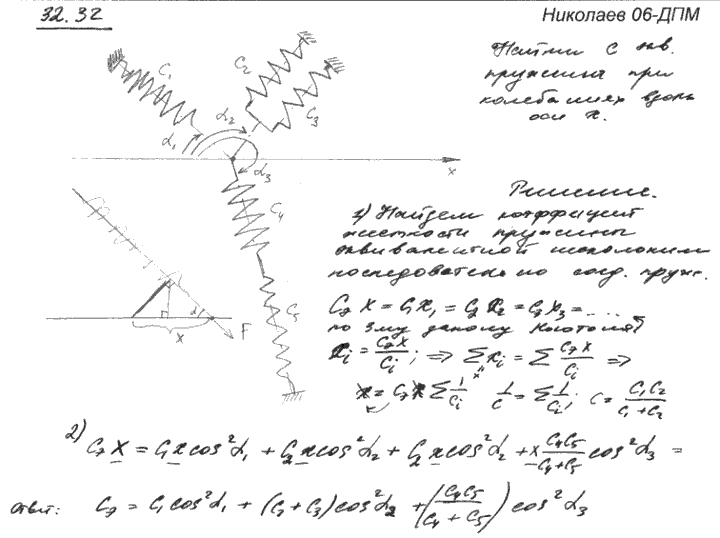 32.32
Николаев 06-ДПМ
Найти C экв.
пружины при
колебаниях вдоль
оси x.
C₁
C₂
C₃
α₁
α₂
α₃
x
C₄
C₅
α
x
F
Решение.
1) Найдем коэффициент
жесткости пружины
эквивалентной нескольким
последовательно соед. пруж.
Cэ x = C₁x₁ = C₂x₂ = C₃x₃ = ....
по 3му закону Ньютона
xᵢ = Cэx/Cᵢ ; ⇒ Σxᵢ = Σ Cэx/Cᵢ ⇒
x = Cэ x Σ 1/Cᵢ 1/C = Σ 1/Cᵢ ; C = C₁C₂/(C₁+C₂)
2) Cэ x = C₁x cos²α₁ + C₂x cos²α₂ + C₂x cos²α₂ + x C₄C₅/(C₄+C₅) cos²α₃ =
ответ: Cэ = C₁cos²α₁ + (C₂+C₃)cos²α₂ + (C₄C₅/(C₄+C₅)) cos²α₃